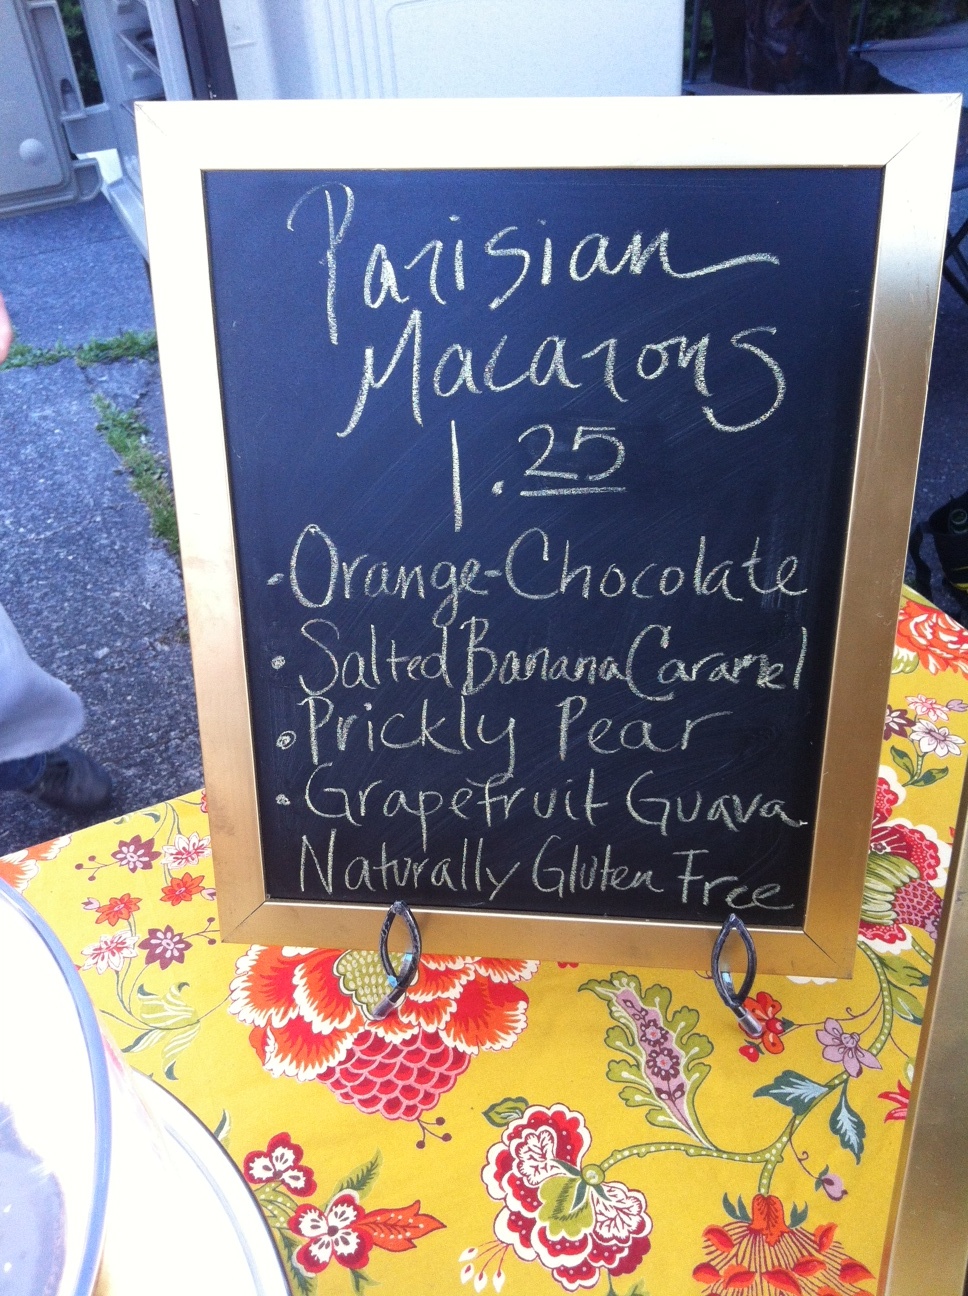 Parisian
Macarons
1.25
• Orange-Chocolate
• Salted Banana Caramel
• Prickly Pear
• Grapefruit Guava
Naturally Gluten Free